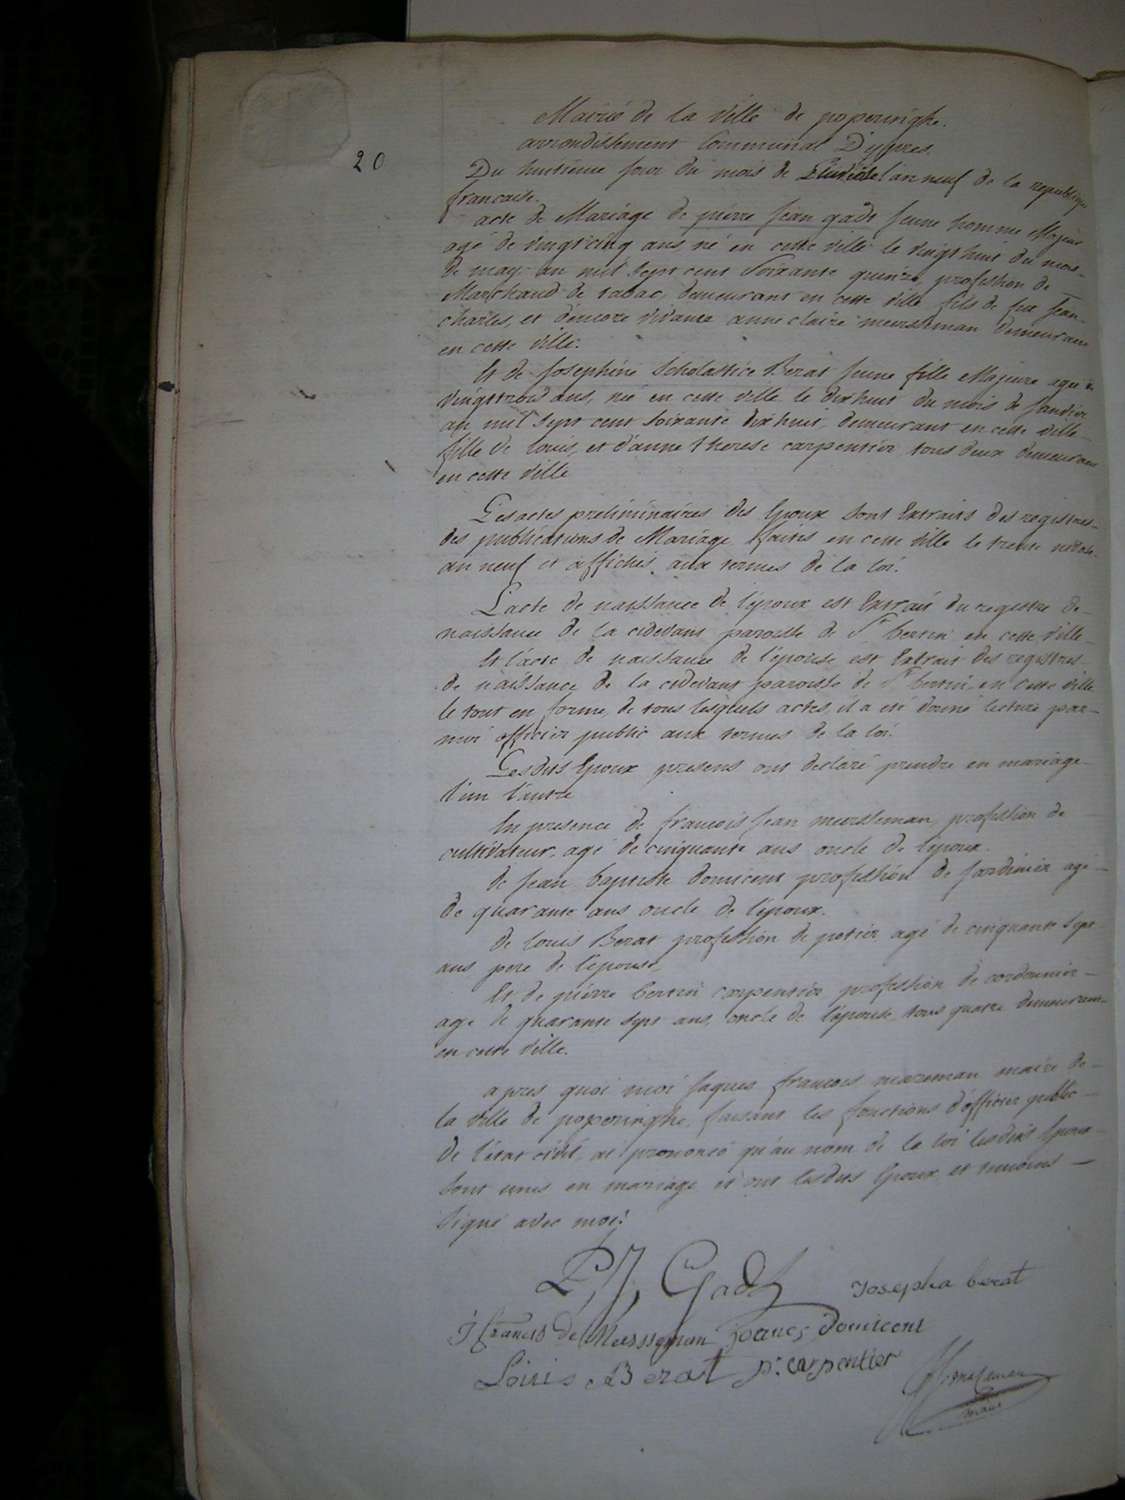 20
Mairie de la ville de poperinghe.
arrondissement Communal D'ypres.
Du huitieme jour du mois de Pluviose l'an neuf de la republique
francaise.
acte de Mariage de pierre jean gade jeune homme Majeur
agé de vingt cinq ans né en cette ville le vingt huit du mois
de may an mil sept cent soixante quinze, profession de
Marchand de tabac, demeurant en cette ville fils de feu jean
charles, et d'encore vivante anne claire meersseman demeurant
en cette ville.
Et de Josephine Scholastice Berat jeune fille Majeure agée de
vingt trois ans, née en cette ville le dix huit du mois de janvier
an mil sept cent soixante dix huit, demeurant en cette ville
fille de louis, et d'anne therese carpentier tous deux demeurans
en cette ville
Les actes preliminaires des Epoux sont Extraits des registres
des publications de Mariage faites en cette ville le trente nivose
an neuf et affichés aux termes de la loi.
L'acte de naissance de l'époux est Extrait du registre de
naissance de la cidevant paroisse de St bertin en cette ville
Et l'acte de naissance de l'épouse est Extrait des registres
de naissance de la cidevant paroisse de St bertin en cette ville
le tout en forme, de tous lesquels actes, il a été donné lecture par
moi officier public aux termes de la loi.
Lesdits Epoux presens ont declaré prendre en mariage
l'un l'autre
En presence de francois jean meersseman, profession de
cultivateur, agé de cinquante ans oncle de l'epoux.
de jean baptiste domicent profession de jardinier agé
de quarante ans oncle de l'époux.
de louis Berat profession de potier agé de cinquante sept
ans pere de l'epouse,
Et de pierre bertin carpentier profession de cordonnier
agé de quarante sept ans, oncle de l'épouse, tous quatre demeurans
en cette ville.
apres quoi moi jaques francois mazeman maire de
la ville de poperinghe, faisant les fonctions d'officier public
de l'état civil, ai prononcé qu'au nom de la loi lesdits Epoux
sont unis en mariage et ont lesdits Epoux et temoins
signé avec moi.
P, J, Gade
Josepha berat
J francis De Mersseman
domicent
Louis Berat
p: carpentier
maire